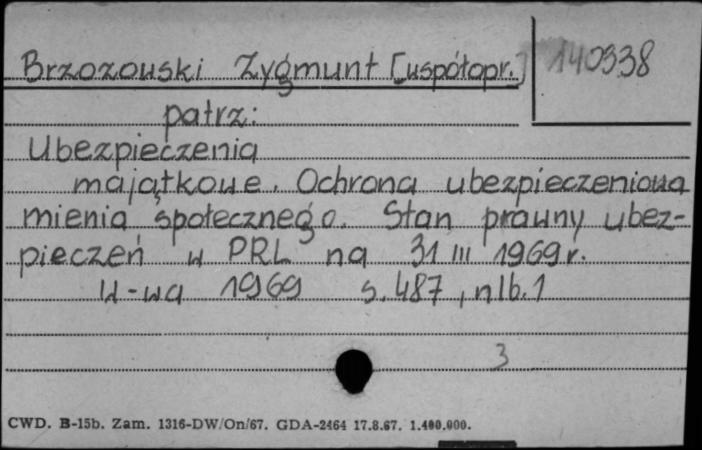 Brzozowski Zygmunt [współopr.]
140338
patrz:
Ubezpieczenia
majątkowe. Ochrona ubezpieczeniowa
mienia społecznego. Stan prawny ubez-
pieczeń w PRL na 31 III 1969 r.
W-wa 1969 s. 487, nlb. 1
3
CWD. B-15b. Zam. 1316-DW/On/67. GDA-2464 17.8.67. 1.400.000.